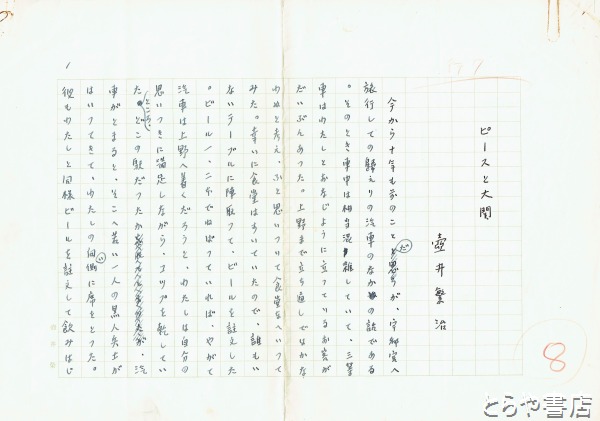 ピースと大関
壺井繁治
今から十年も前のことだが、宇都宮へ
旅行しての帰えりの汽車のなかの話である
。そのとき車中は相当混雑していて、三等
車はわたしとおなじように立っているお客が
だいぶんあった。上野まで立ち通しではかな
わぬと考え、ふと思いついて食堂へいって
みた。幸いに食堂はすいていたので、誰もい
ないテーブルに陣取って、ビールを註文した
。ビール一、二本でねばっていれば、やがて
汽車は上野へ着くだろうと、わたしは自分の
思いつきに満足しながら、コップを乾してい
た。ところが、どこの駅だったか、汽
車がとまると、そこへ若い一人の黒人兵士が
はいってきて、わたしの向い側に席をとった。
彼もわたしと同様ビールを註文して飲みはじ
1
8
とらや書店